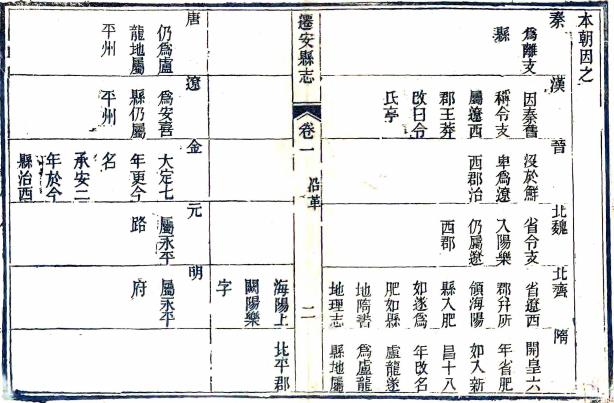 本朝因之
秦
爲離支
縣
漢
因秦舊
稱令支
屬遼西
郡王莽
改曰令
氏亭
晉
沒於鮮
卑爲遼
西郡治
北魏
省令支
入陽樂
仍屬遼
西郡
北齊
省遼西
郡幷所
領海陽
縣入肥
如遂爲
肥如縣
地隋書
地理志
海陽上
闕陽樂
字
隋
開皇六
年省肥
如入新
昌十八
年改名
盧龍遂
爲盧龍
縣地屬
北平郡
遷安縣志
卷一
沿革
二
唐
仍爲盧
龍地屬
平州
遼
爲安喜
縣仍屬
平州
金
大定七
年更今
名
承安二
年於今
縣治西
元
屬永平
路
明
屬永平
府